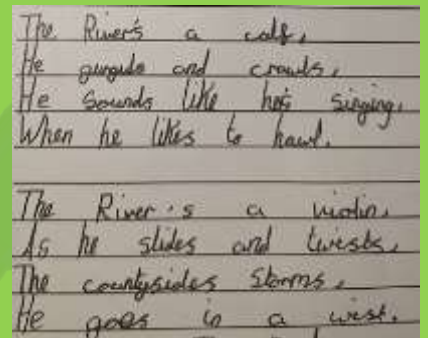 The River's a calf,
He and crawls,
He sounds like he's singing,
When he likes to hawl.
The River's a violin,
As he slides and twists,
The countysides storms,
He goes in a wist.